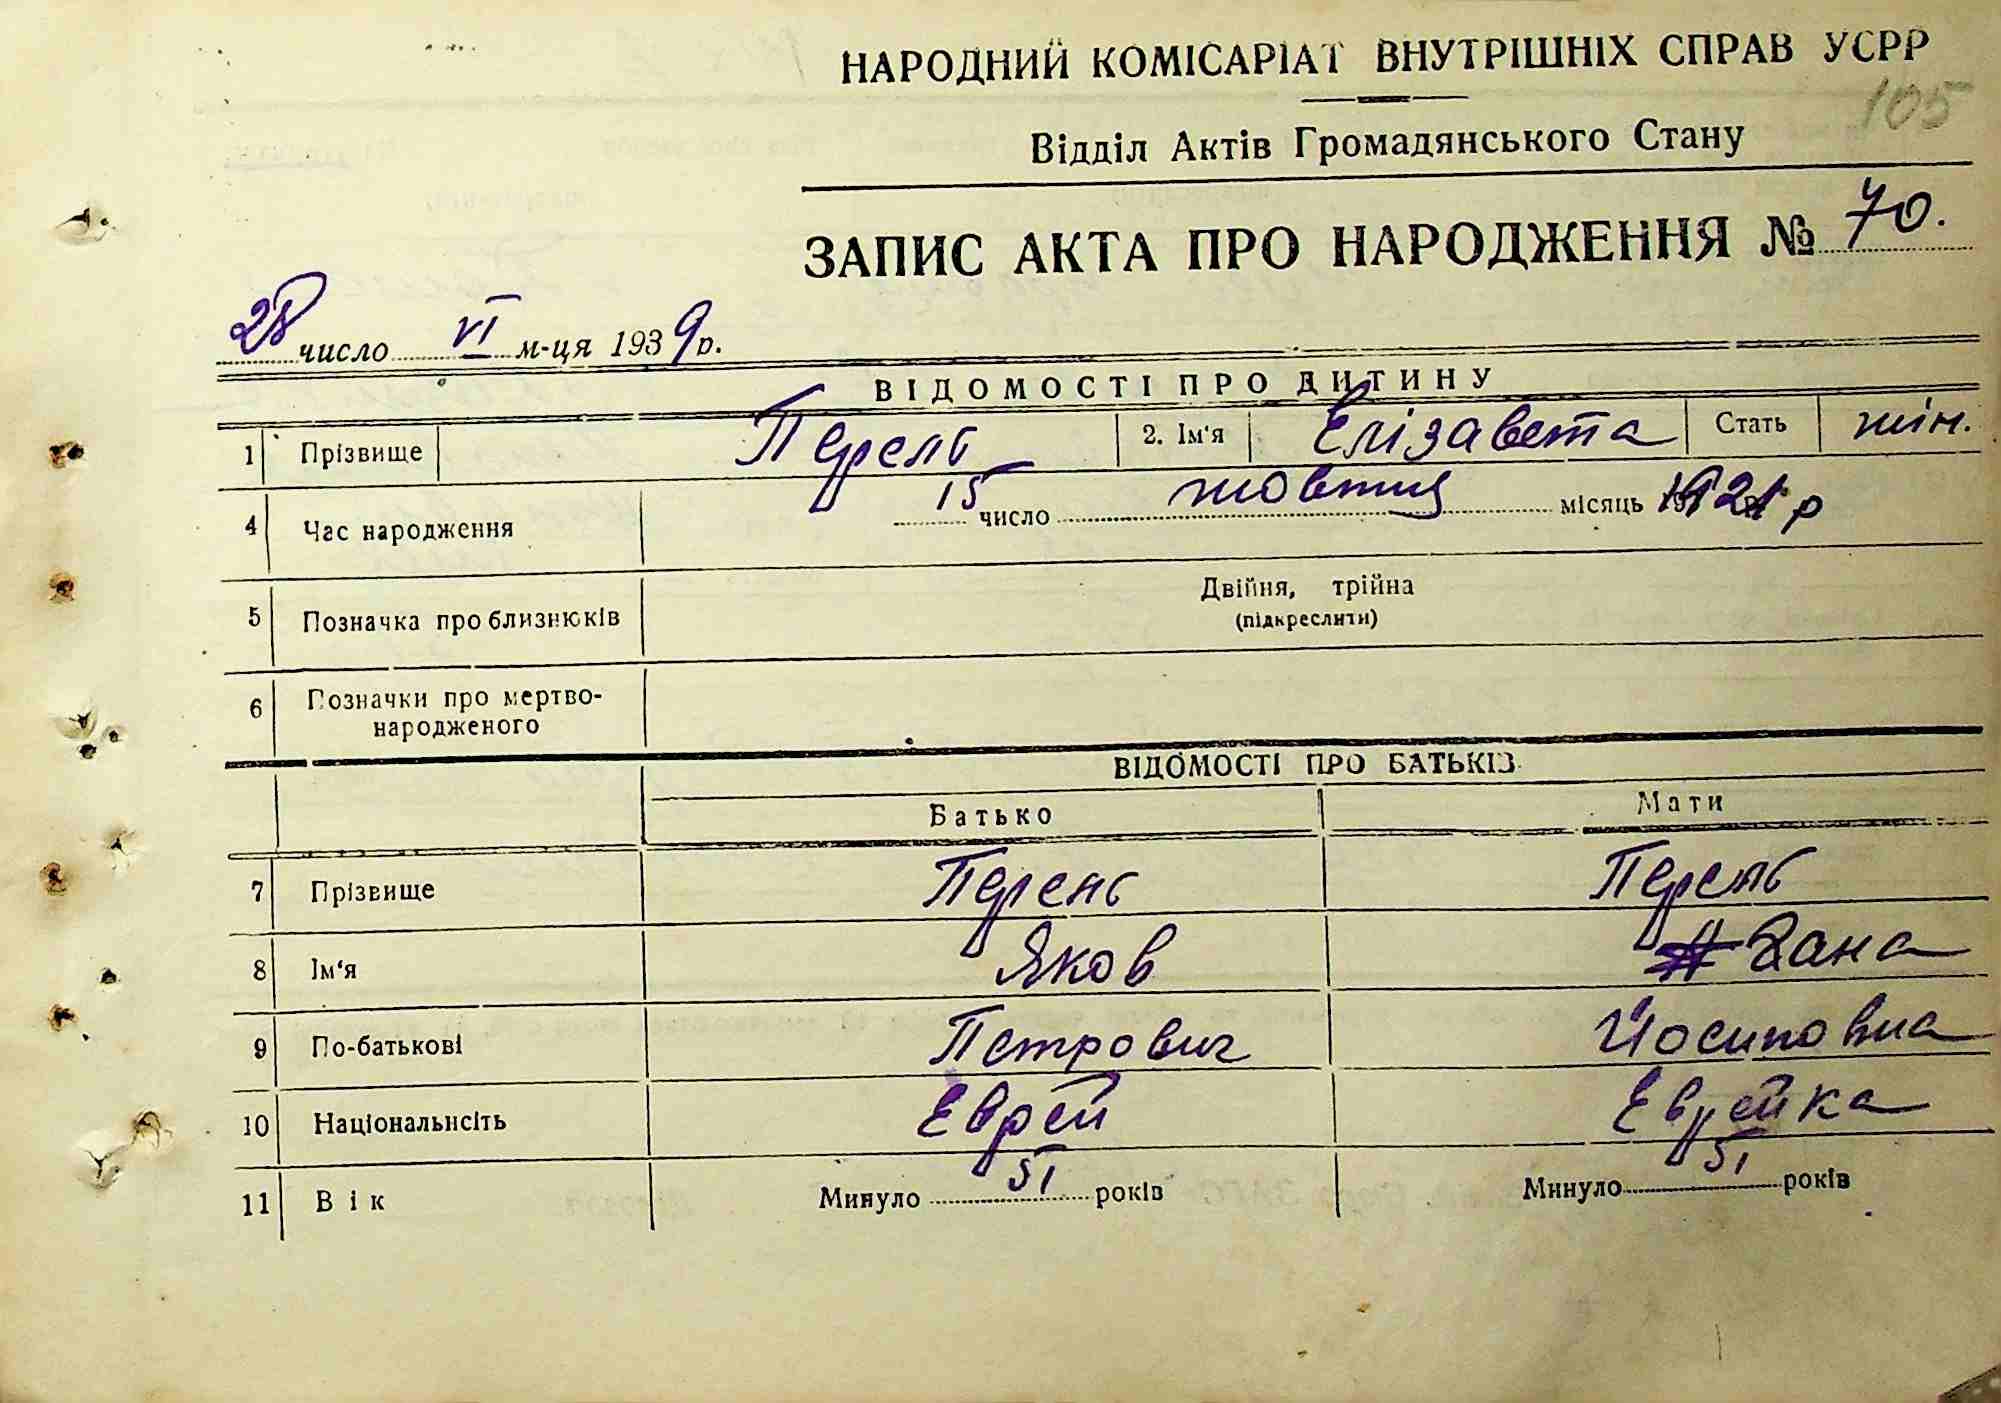 НАРОДНИЙ КОМІСАРІАТ ВНУТРІШНІХ СПРАВ УСРР
105
Відділ Актів Громадянського Стану
ЗАПИС АКТА ПРО НАРОДЖЕННЯ № 70.
28 число VI м-ця 1939 р.
ВІДОМОСТІ ПРО ДИТИНУ
1 Прізвище Перель 2. Ім'я Елізавета Стать жін.
4 Час народження 15 число жовтня місяць 1921 р
5 Позначка про близнюків Двійня, трійна
(підкреслити)
6 Позначки про мертво-
народженого
ВІДОМОСТІ ПРО БАТЬКІВ
Батько Мати
7 Прізвище Перель Перель
8 Ім'я Яков Хана
9 По-батькові Петрович Йосиповна
10 Національність Еврей Еврейка
11 Вік Минуло 51 років Минуло 51 років